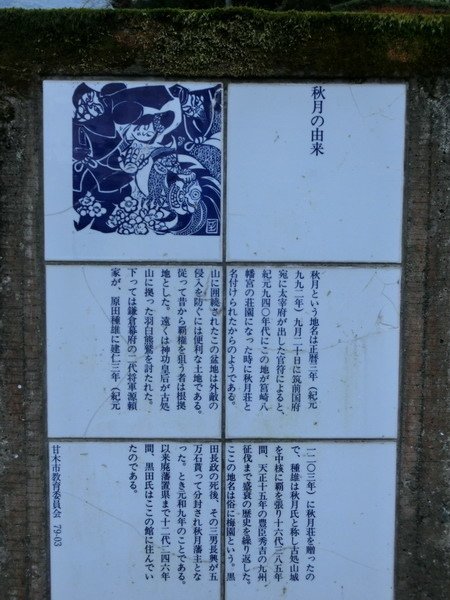 秋月の由来
秋月という地名は正暦三年（紀元
九九二年）九月二十日に筑前国府
宛に太宰府が出した官符によると、
紀元九四〇年代にこの地が宮崎八
幡宮の荘園になった時に秋月荘と
名付けられたからのようである。
山に囲繞されたこの盆地は外敵の
侵入を防ぐには便利な土地である。
従って昔から覇権を狙う者は根拠
地とした。遠くは神功皇后が古処
山に拠った羽白熊鷲を討たれた。
下っては鎌倉幕府の二代将軍源頼
家が、原田種雄に建仁三年（紀元
一二〇三年）に秋月荘を贈ったの
で、種雄は秋月氏と称し古処山城
を中核に覇を張り十六代三八五年
間、天正十五年の豊臣秀吉の九州
征伐まで盛衰の歴史を繰り返した。
ここの地名は俗に梅園という。黒
田長政の死後、その三男長興が五
万石貰って分封され秋月藩主とな
った。とき元和九年のことである。
以来廃藩置県まで十二代二四六年
間、黒田氏はここの館に住んでい
たのである。
甘木市教育委員会 79-03